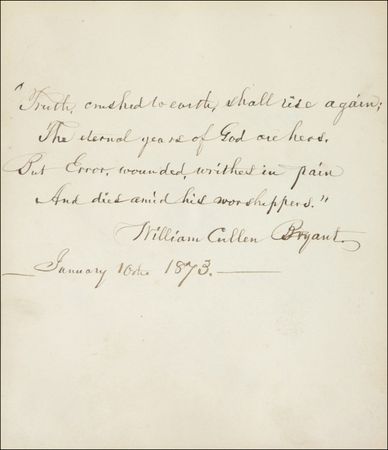 "Truth, crushed to earth, shall rise again;
The eternal years of God are hers.
But Error, wounded, writhes in pain
And dies amid his worshippers."
William Cullen Bryant.
January 10th 1873.